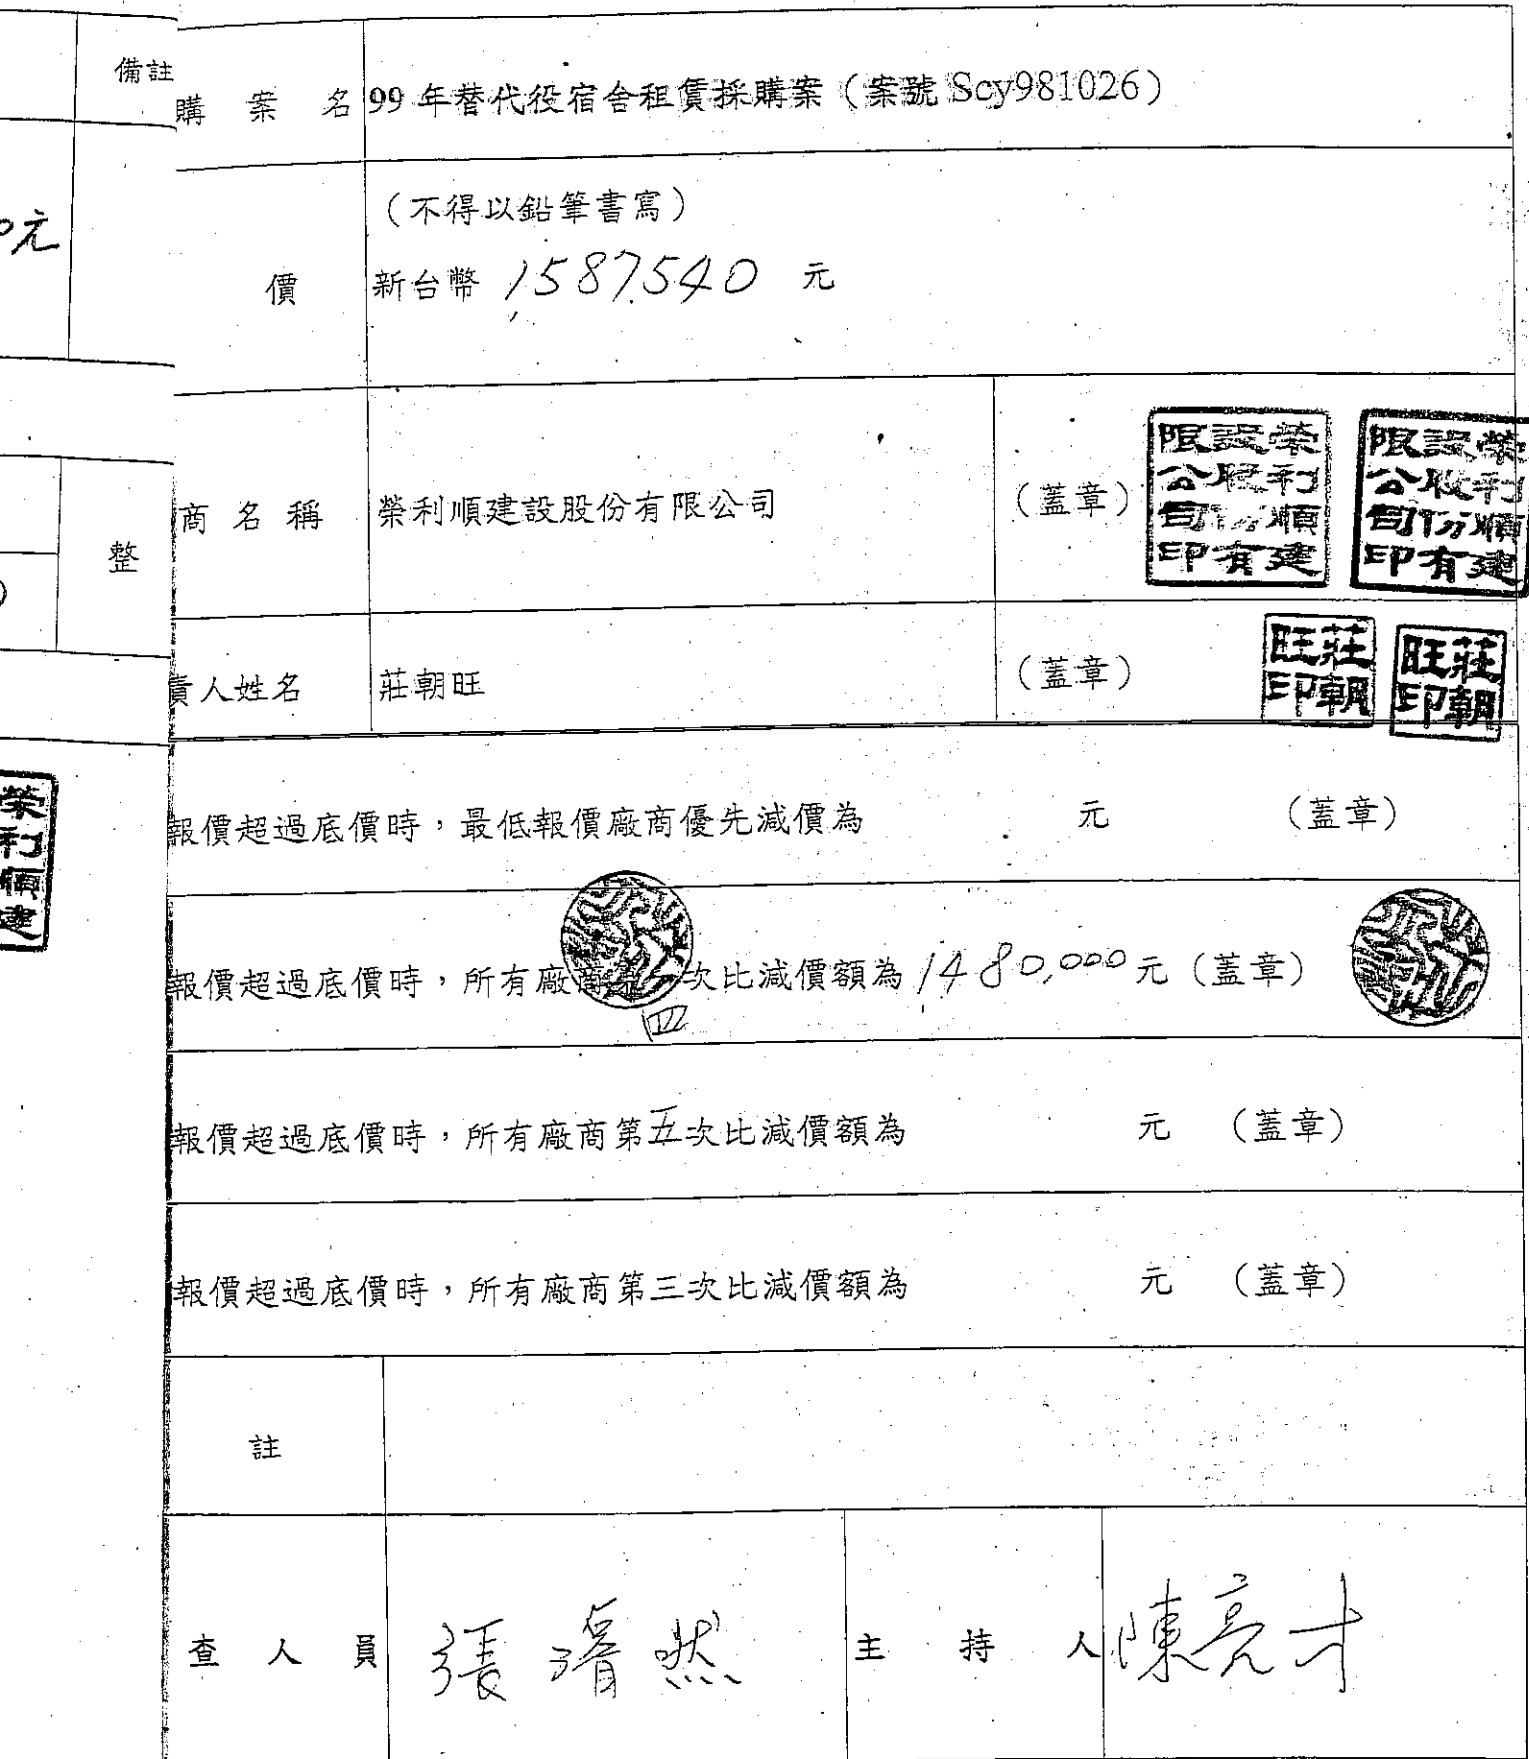 備註
0元
整
榮利順建
購 案 名
99 年替代役宿舍租賃採購案（案號 Scy981026）
價
（不得以鉛筆書寫）
新台幣 1,587,540 元
商 名 稱
榮利順建設股份有限公司
（蓋章）
榮利順建設股份有限公司印
榮利順建設股份有限公司印
責人姓名
莊朝旺
（蓋章）
莊朝旺印
莊朝旺印
報價超過底價時，最低報價廠商優先減價為 元 （蓋章）
報價超過底價時，所有廠商第 四 次比減價額為 1480,000 元（蓋章）
報價超過底價時，所有廠商第五次比減價額為 元 （蓋章）
報價超過底價時，所有廠商第三次比減價額為 元 （蓋章）
註
查 人 員
張 濬 然
主 持 人
陳亮才